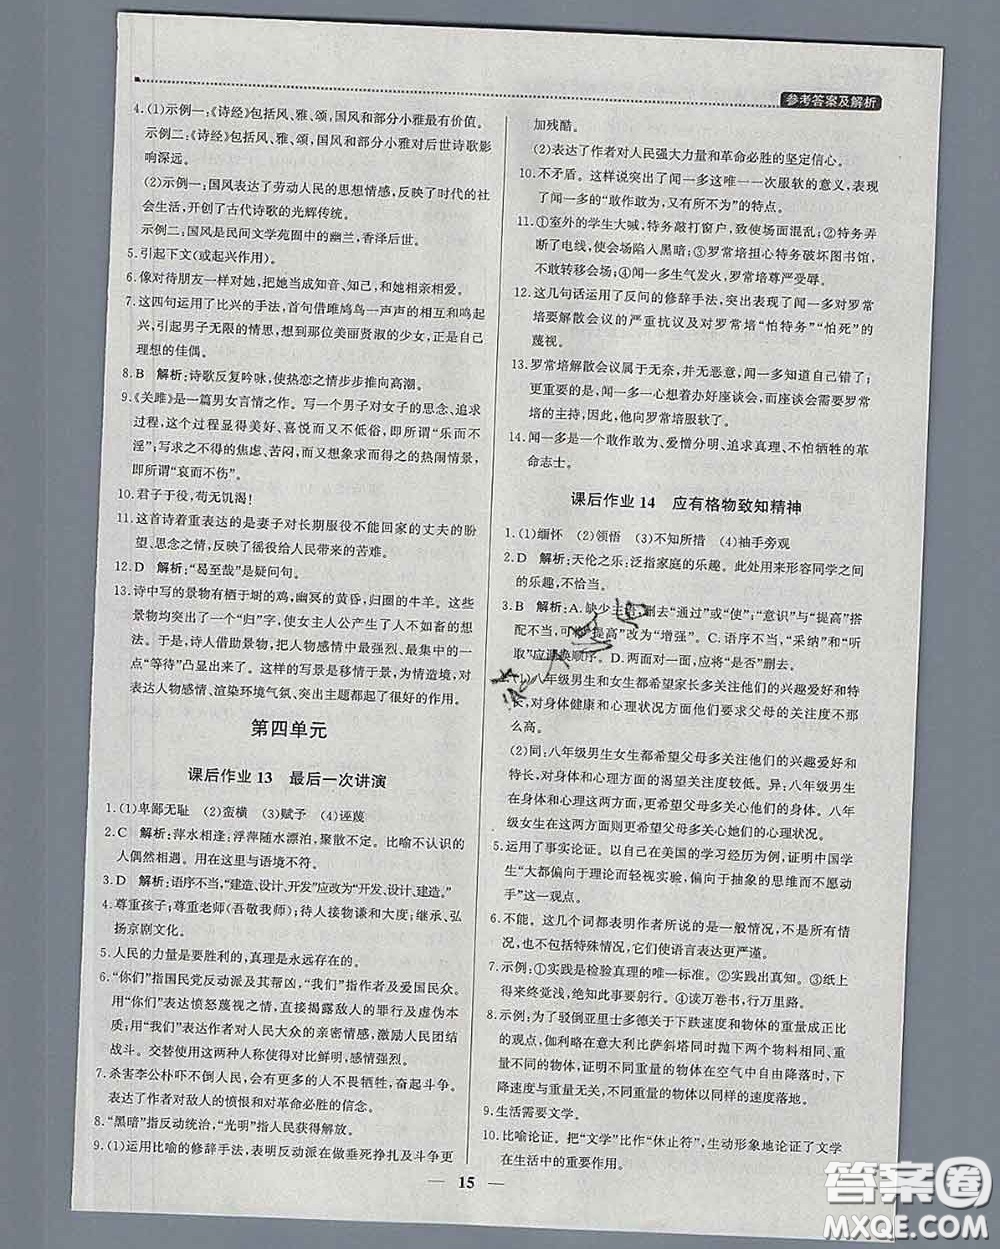 参考答案及解析
4.(1)示例一:《诗经》包括风、雅、颂,国风和部分小雅最有价值。
示例二:《诗经》包括风、雅、颂,国风和部分小雅对后世诗歌影
响深远。
(2)示例一:国风表达了劳动人民的思想情感,反映了时代的社
会生活,开创了古代诗歌的光辉传统。
示例二:国风是民间文学苑囿中的幽兰,香泽后世。
5.引起下文(或起兴作用)。
6.像对待朋友一样对她,把她当成知音、知己,和她相亲相爱。
7.这四句运用了比兴的手法,首句借雎鸠鸟一声声的相互和鸣起
兴,引起男子无限的情思,想到那位美丽贤淑的少女,正是自己
理想的佳偶。
8.B 解析:诗歌反复吟咏,使热恋之情步步推向高潮。
9.《关雎》是一篇男女言情之作。写一个男子对女子的思念、追求
过程,这个过程显得美好、喜悦而又不低俗,即所谓“乐而不
淫”;写求之不得的焦虑、苦闷,而又想象求而得之的热闹情景,
即所谓“哀而不伤”。
10.君子于役,苟无饥渴!
11.这首诗着重表达的是妻子对长期服役不能回家的丈夫的盼
望、思念之情,反映了徭役给人民带来的苦难。
12.D 解析:“曷至哉”是疑问句。
13.诗中写的景物有栖于埘的鸡,幽冥的黄昏,归圈的牛羊。这些
景物均突出了一个“归”字,使女主人公产生了人不如畜的悲
伤。于是,诗人借助景物,把人物感情中最强烈、最感动人的一
点“等待”凸显出来了。这样的写景是移情于景,为情造境,对
表达人物感情、渲染环境气氛、突出主题都起了很好的作用。
第四单元
课后作业 13 最后一次讲演
1.(1)卑鄙无耻 (2)蛮横 (3)赋予 (4)诬蔑
2.C 解析:萍水相逢:浮萍随水漂泊,聚散不定。比喻不认识的
人偶然相遇。用在这里与语境不符。
3.D 解析:语序不当,“建造、设计、开发”应改为“开发、设计、建造。”
4.尊重孩子;尊重老师(吾敬我师);待人接物谦和大度;继承、弘
扬京剧文化。
5.人民的力量是要胜利的,真理是永远存在的。
6.“你们”指国民党反动派及其帮凶,“我们”指作者及爱国民众。
用“你们”表达愤怒蔑视之情,直接揭露敌人的罪行及虚伪本
质;用“我们”表达作者对人民大众的亲密感情,激励人民团结
战斗。交替使用这两种人称使得对比鲜明,感情强烈。
7.杀害李公朴吓不倒人民,会有更多的人不畏牺牲,奋起斗争。
表达了作者对敌人的愤恨和对革命必胜的信念。
8.“黑暗”指反动统治,“光明”指人民获得解放。
9.(1)运用比喻的修辞手法,表明反动派在做垂死挣扎及斗争更
加残酷。
(2)表达了作者对人民强大力量和革命必胜的坚定信心。
10.不矛盾。这样说突出了闻一多这唯一一次服软的意义,表现
了闻一多的“敢作敢为,又有所不为”的特点。
11.①室外的学生大喊,特务敲打窗户,致使场面混乱;②特务弄
断了电线,使会场陷入黑暗;③罗常培担心特务破坏图书馆,
不敢转移会场;④闻一多生气发火,罗常培尊严受辱。
12.这几句话运用了反问的修辞手法,突出表现了闻一多对罗常
培要解散会议的严重抗议及对罗常培“怕特务”“怕死”的
蔑视。
13.罗常培解散会议属于无奈,并无恶意,闻一多知道自己错了;
更重要的是,闻一多一心想着办好座谈会,而座谈会需要罗常
培的主持,因此,他向罗常培服软了。
14.闻一多是一个敢作敢为、爱憎分明、追求真理、不怕牺牲的革
命志士。
课后作业 14 应有格物致知精神
1.(1)缅怀 (2)领悟 (3)不知所措 (4)袖手旁观
2.D 解析:天伦之乐:泛指家庭的乐趣。此处用来形容同学之间
的乐趣,不恰当。
3.B 解析:A.缺少主语,删去“通过”或“使”;“意识”与“提高”搭
配不当,可将“提高”改为“增强”。C.语序不当,“采纳”和“听
取”应调换顺序。D.两面对一面,应将“是否”删去。
(1)八年级男生和女生都希望家长多关注他们的兴趣爱好和特
长,对身体健康和心理状况方面他们要求父母的关注度不那
么高。
(2)同:八年级男生女生都希望父母多关注他们的兴趣爱好和
特长,对身体和心理方面的渴望关注度较低。异:八年级男生
在身体和心理方面更希望父母多关心他们的身体。八年
级女生在这两方面则更希望父母多关心她们的心理状况。
5.运用了事实论证。以自己在美国的学习经历为例,证明中国学
生“大都偏向于理论而轻视实验,偏向于抽象的思维而不愿动
手”这一观点。
6.不能。这几个词都表明作者所说的是一般情况,而不是所有情
况,也不包括特殊情况,它们使语言表达更严谨。
7.示例:①实践是检验真理的唯一标准。②实践出真知。③纸上
得来终觉浅,绝知此事要躬行。④读万卷书,行万里路。
8.示例:为了驳倒亚里士多德关于下跌速度和物体的重量成正比
的观点,伽利略在意大利比萨斜塔同时抛下两个物料相同、重
量不同的物体,证明不同重量的物体在空气中自由降落时,下
降速度与重量无关,不同重量的物体以同样的速度落地。
9.生活需要文学。
10.比喻论证。把“文学”比作“休止符”,生动形象地论证了文学
在生活中的重要作用。
15
答案圈
MXQE.COM